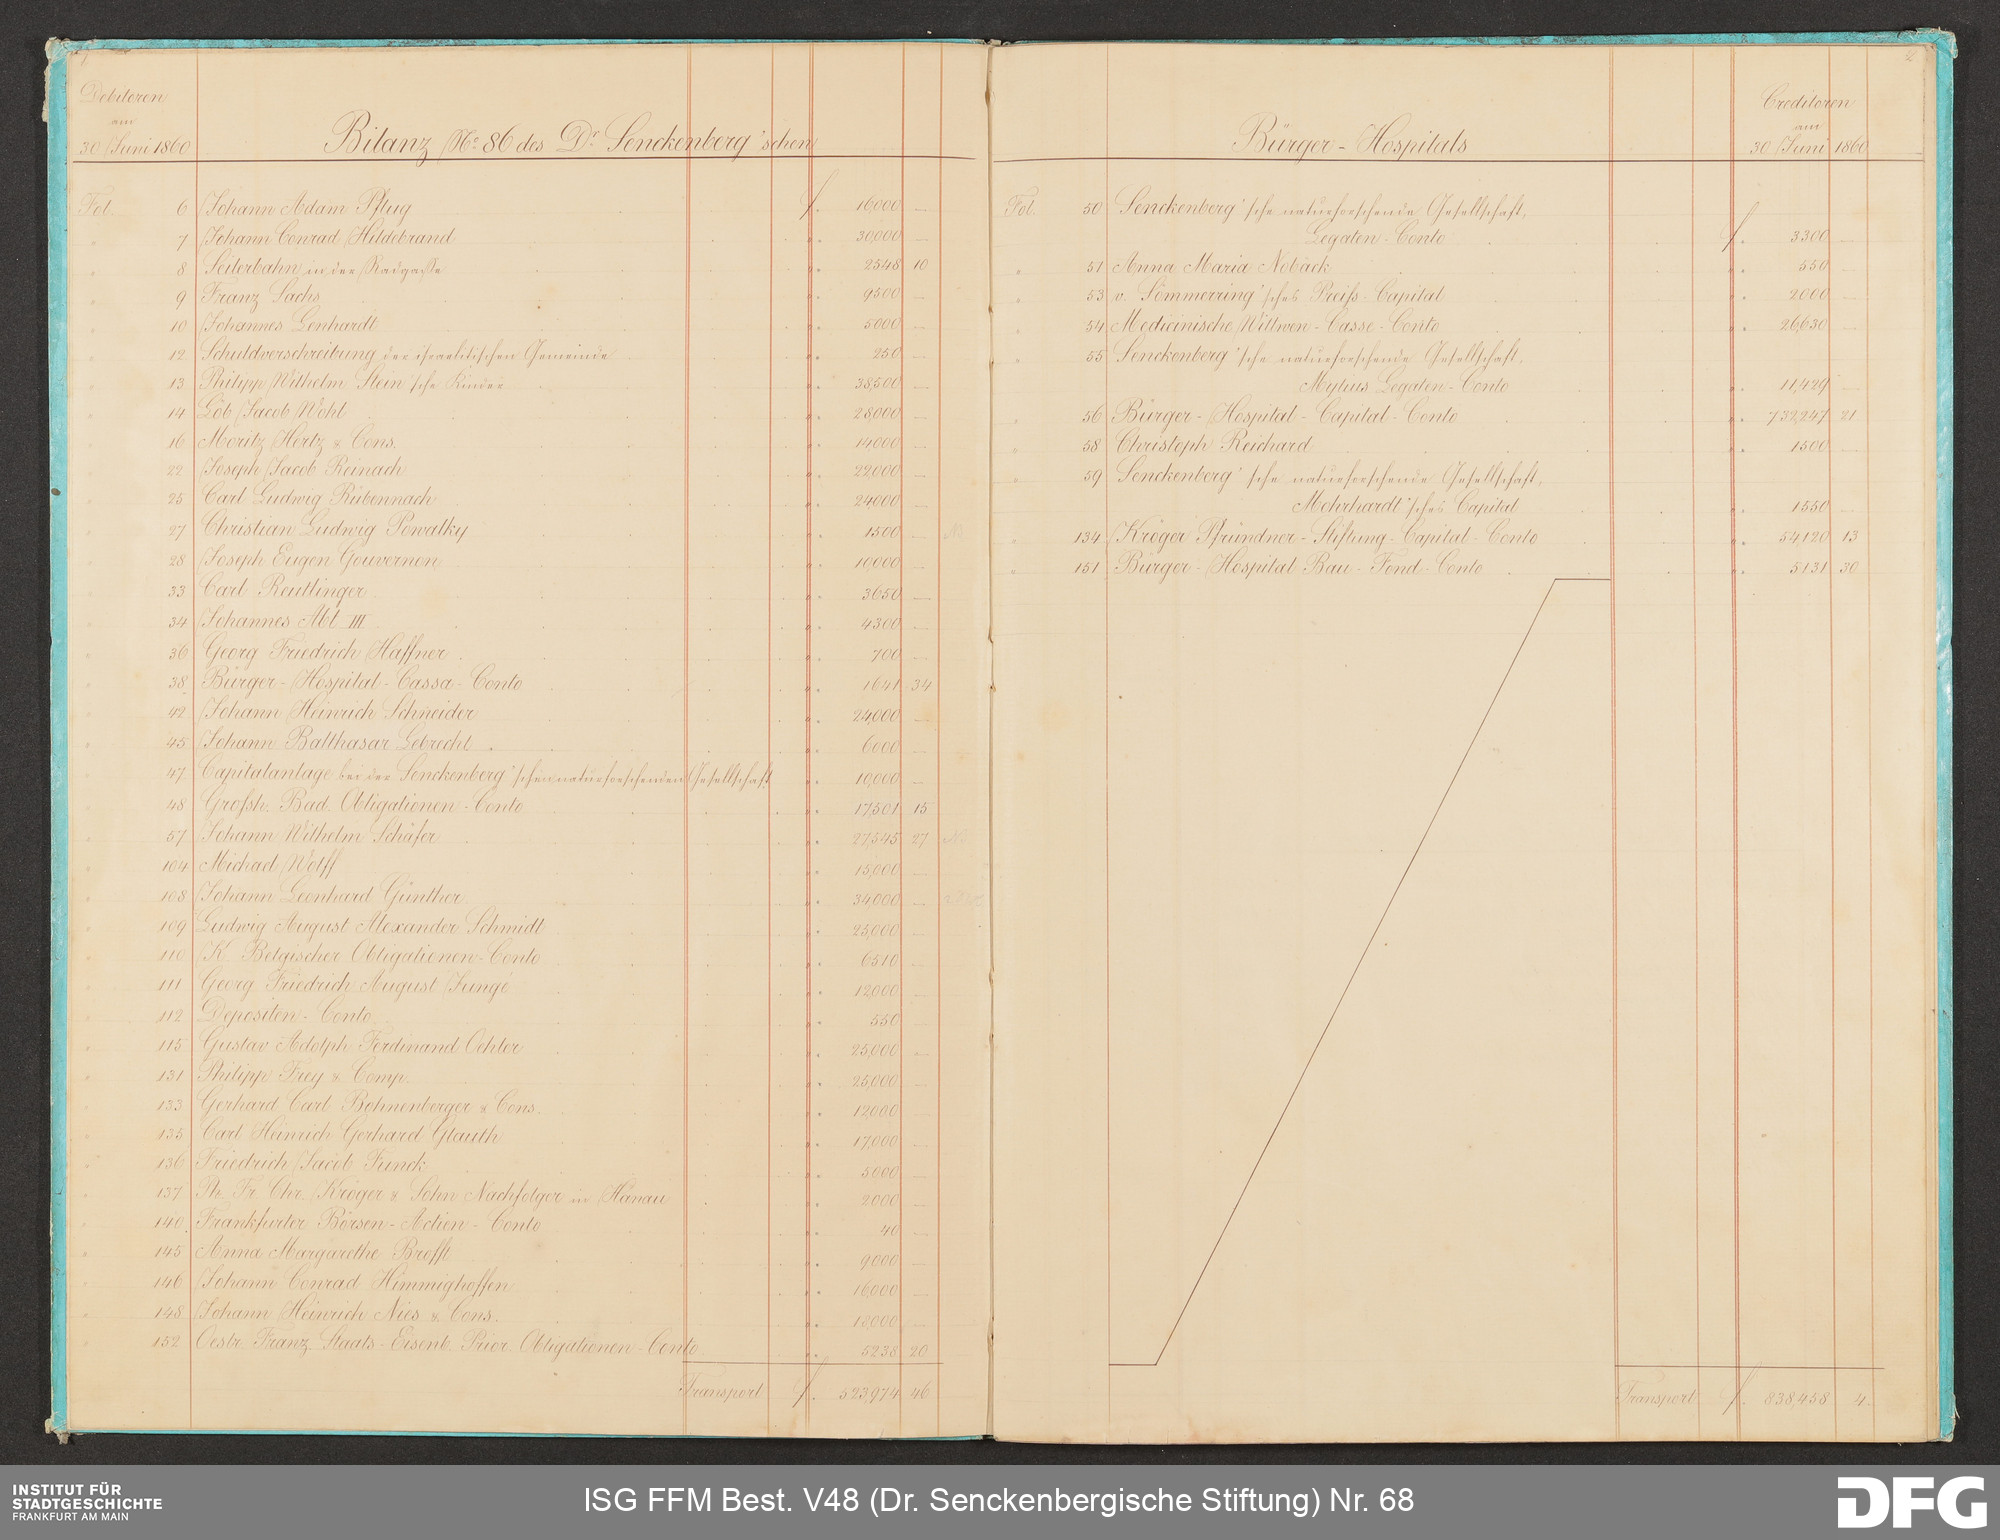 1
Debitoren
am
30 Juni 1860
Bilanz No. 86 des Dr. Senckenberg'schen
Fol. 6 Johann Adam Pflug f. 16,000 —
" 7 Johann Conrad Hildebrand " 30,000 —
" 8 Seilerbahn in der Radgasse " 2548 10
" 9 Franz Sachs " 9500 —
" 10 Johannes Lenhardt " 5000 —
" 12 Schuldverschreibung der israelitischen Gemeinde " 250 —
" 13 Philipp Wilhelm Stein'sche Kinder " 38,500 —
" 14 Löb Jacob Wohl " 28,000 —
" 16 Moritz Hertz & Cons. " 14,000 —
" 22 Joseph Jacob Reinach " 22,000 —
" 25 Carl Ludwig Rübennach " 24,000 —
" 27 Christian Ludwig Powalky " 1500 —
" 28 Joseph Eugen Gouvernon " 10,000 —
" 33 Carl Reutlinger " 3650 —
" 34 Johannes Abt III " 4300 —
" 36 Georg Friedrich Haffner " 700 —
" 38 Bürger-Hospital-Cassa-Conto " 1641 34
" 42 Johann Heinrich Schneider " 24,000 —
" 45 Johann Balthasar Lebrecht " 6000 —
" 47 Capitalanlage bei der Senckenberg'schen naturforschenden Gesellschaft " 10,000 —
" 48 Grofsh. Bad. Obligationen-Conto " 17,501 15
" 57 Johann Wilhelm Schäfer " 27,545 27
" 104 Michael Wolff " 15,000 —
" 108 Johann Leonhard Günther " 34,000 —
" 109 Ludwig August Alexander Schmidt " 25,000 —
" 110 K. Belgischer Obligationen-Conto " 6510 —
" 111 Georg Friedrich August Junge " 12,000 —
" 112 Depositen-Conto " 550 —
" 115 Gustav Adolph Ferdinand Oehler " 25,000 —
" 131 Philipp Frey & Comp. " 25,000 —
" 133 Gerhard Carl Bohnenberger & Cons. " 12,000 —
" 135 Carl Heinrich Gerhard Glauth " 17,000 —
" 136 Friedrich Jacob Funck " 5000 —
" 137 Ph. Fr. Chr. Kröger & Sohn Nachfolger in Hanau " 2000 —
" 140 Frankfurter Börsen-Actien-Conto " 40 —
" 145 Anna Margarethe Brofft " 9000 —
" 146 Johann Conrad Himmighoffen " 16,000 —
" 148 Johann Heinrich Nies & Cons. —
" 152 Oestr. Franz. Staats-Eisenb. Prior. Obligationen-Conto " 5238 20
Transport f. 523,974 46
2
Creditoren
am
30 Juni 1860
Bürger-Hospitals
Fol. 50 Senckenberg'sche naturforschende Gesellschaft,
Legaten-Conto f. 3300 —
" 51 Anna Maria Noback " 550 —
" 53 v. Sömmerring'sches Preifs-Capital " 2000 —
" 54 Medicinische Wittwen-Casse-Conto " 26,630 —
" 55 Senckenberg'sche naturforschende Gesellschaft,
Mylius Legaten-Conto " 11,429 —
" 56 Bürger-Hospital-Capital-Conto " 732,247 21
" 58 Christoph Reichard " 1500 —
" 59 Senckenberg'sche naturforschende Gesellschaft,
Mohrhardt'sches Capital " 1550 —
" 134 Kröger Pfründner-Stiftung-Capital-Conto " 54120 13
" 151 Bürger-Hospital Bau-Fond-Conto " 5131 30
Transport f. 838,458 4
INSTITUT FÜR
STADTGESCHICHTE
FRANKFURT AM MAIN
ISG FFM Best. V48 (Dr. Senckenbergische Stiftung) Nr. 68
DFG